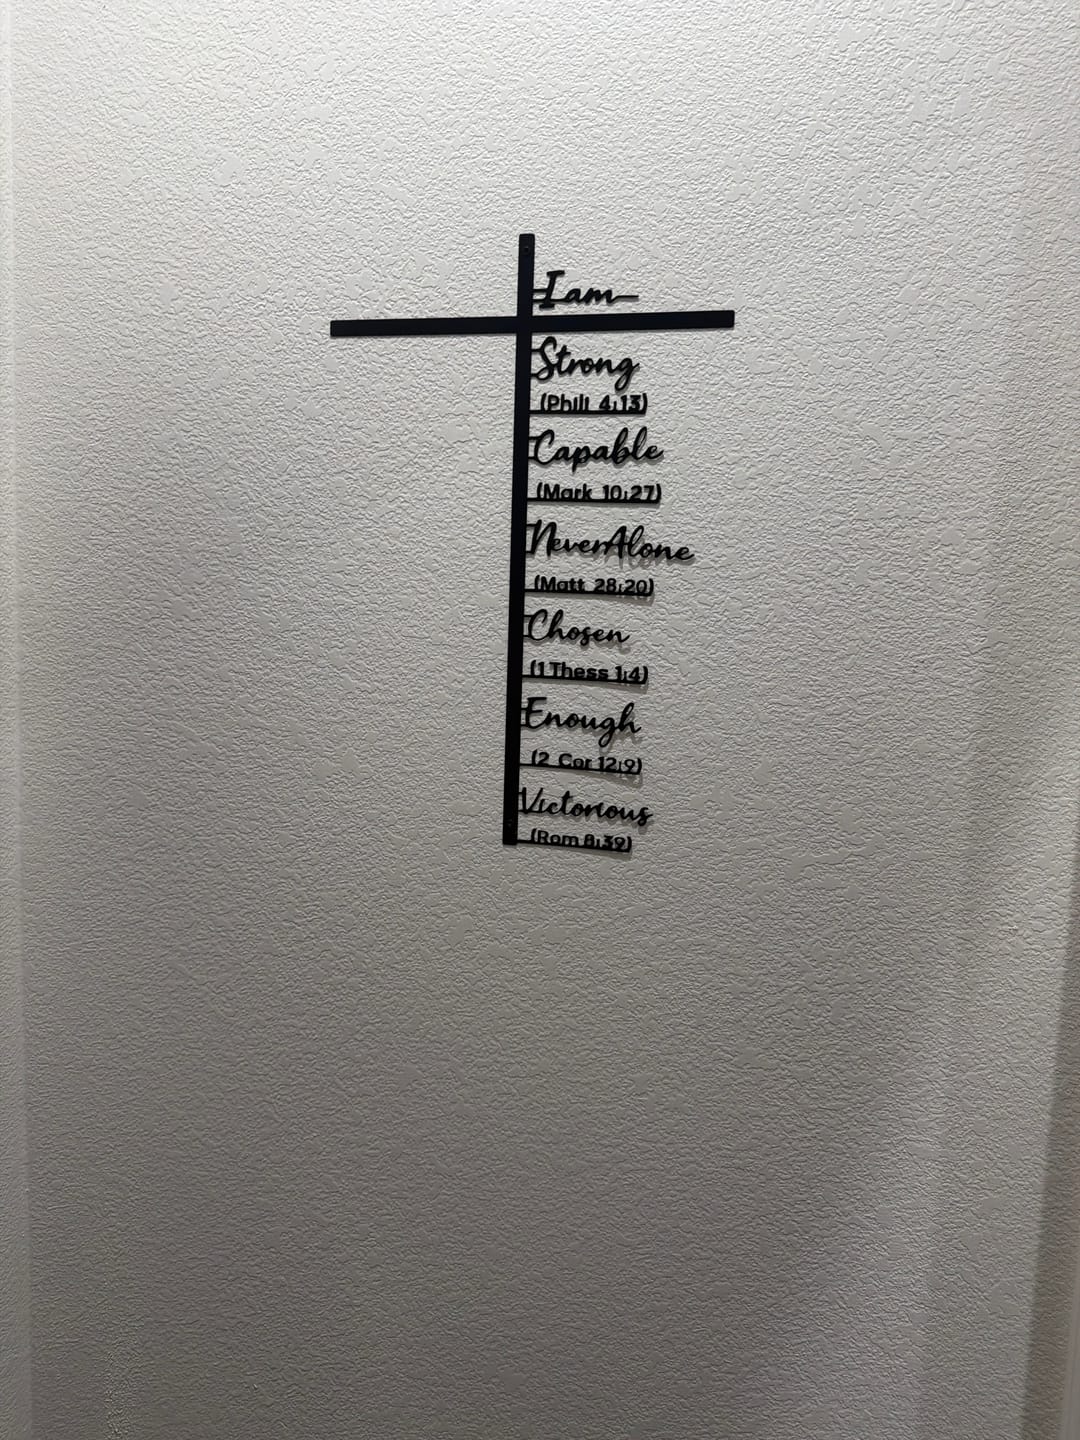 I am
Strong
(Phill 4:13)
Capable
(Mark 10:27)
Never Alone
(Matt 28:20)
Chosen
(1 Thess 1:4)
Enough
(2 Cor 12:9)
Victorious
(Rom 8:39)